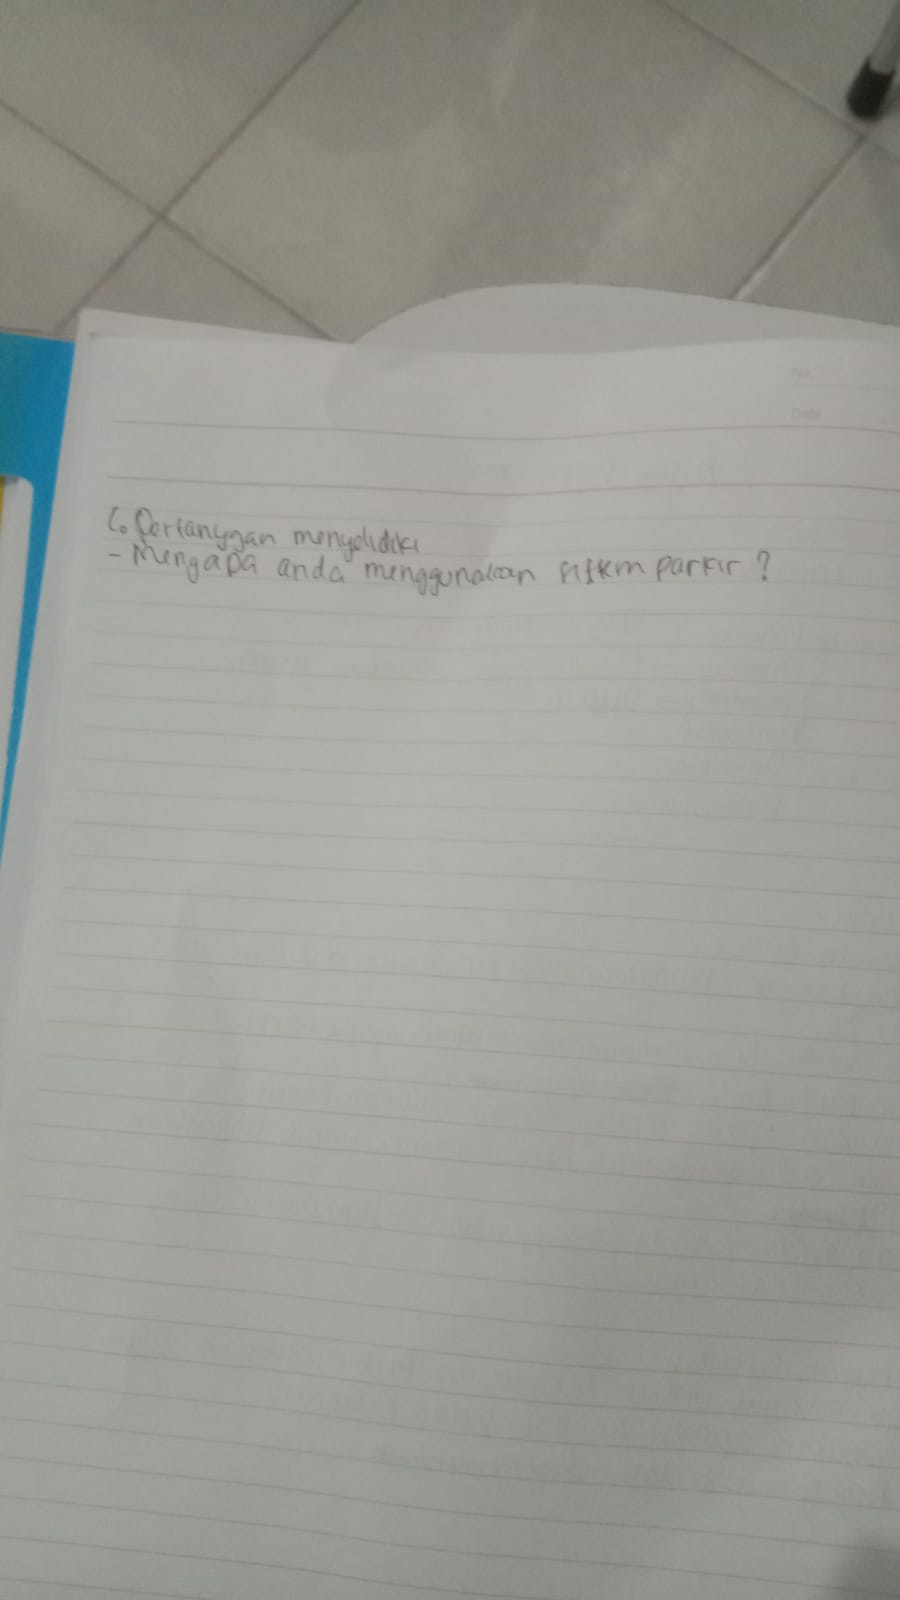 No.
Date
6. Pertanyaan menyelidiki
- Mengapa anda menggunakan sistem parkir ?